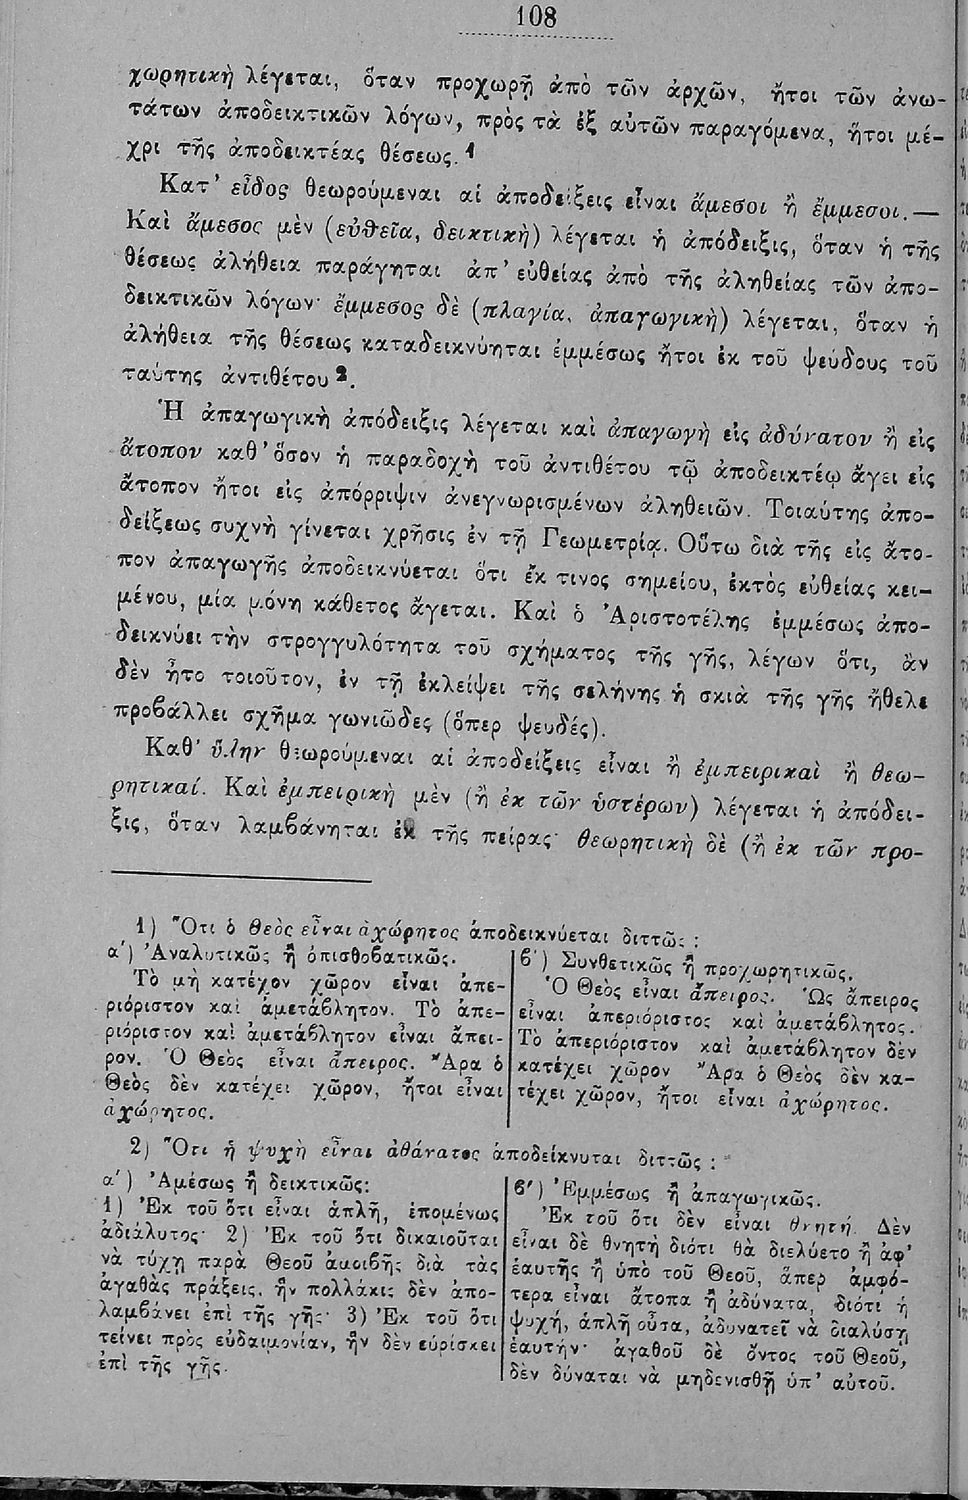 108
χωρητικὴ λέγεται, ὅταν προχωρῇ ἀπὸ τῶν ἀρχῶν, ἤτοι τῶν ἀνω-
τάτων ἀποδεικτικῶν λόγων, πρὸς τὰ ἐξ αὐτῶν παραγόμενα, ἤτοι μέ-
χρι τῆς ἀποδεικτέας θέσεως.1
Κατ' εἶδος θεωρούμεναι αἱ ἀποδείξεις εἶναι ἄμεσοι ἢ ἔμμεσοι.—
Καὶ ἄμεσος μὲν (εὐθεῖα, δεικτικὴ) λέγεται ἡ ἀπόδειξις, ὅταν ἡ τῆς
θέσεως ἀλήθεια παράγηται ἀπ' εὐθείας ἀπὸ τῆς ἀληθείας τῶν ἀπο-
δεικτικῶν λόγων· ἔμμεσος δὲ (πλαγία, ἀπαγωγικὴ) λέγεται, ὅταν ἡ
ἀλήθεια τῆς θέσεως καταδεικνύηται ἐμμέσως ἤτοι ἐκ τοῦ ψεύδους τοῦ
ταύτης ἀντιθέτου 2.
Ἡ ἀπαγωγικὴ ἀπόδειξις λέγεται καὶ ἀπαγωγὴ εἰς ἀδύνατον ἢ εἰς
ἄτοπον καθ' ὅσον ἡ παραδοχὴ τοῦ ἀντιθέτου τῷ ἀποδεικτέῳ ἄγει εἰς
ἄτοπον ἤτοι εἰς ἀπόρριψιν ἀνεγνωρισμένων ἀληθειῶν. Τοιαύτης ἀπο-
δείξεως συχνὴ γίνεται χρῆσις ἐν τῇ Γεωμετρίᾳ. Οὕτω διὰ τῆς εἰς ἄτο-
πον ἀπαγωγῆς ἀποδεικνύεται ὅτι ἔκ τινος σημείου, ἐκτὸς εὐθείας κει-
μένου, μία μόνη κάθετος ἄγεται. Καὶ ὁ Ἀριστοτέλης ἐμμέσως ἀπο-
δεικνύει τὴν στρογγυλότητα τοῦ σχήματος τῆς γῆς, λέγων ὅτι, ἂν
δὲν ἦτο τοιοῦτον, ἐν τῇ ἐκλείψει τῆς σελήνης ἡ σκιὰ τῆς γῆς ἤθελε
προβάλλει σχῆμα γωνιῶδες (ὅπερ ψευδές).
Καθ' ὕλην θεωρούμεναι αἱ ἀποδείξεις εἶναι ἢ ἐμπειρικαὶ ἢ θεω-
ρητικαί. Καὶ ἐμπειρικὴ μὲν (ἢ ἐκ τῶν ὑστέρων) λέγεται ἡ ἀπόδει-
ξις, ὅταν λαμβάνηται ἐκ τῆς πείρας· θεωρητικὴ δὲ (ἢ ἐκ τῶν προ-
1) Ὅτι ὁ Θεὸς εἶναι ἀχώρητος ἀποδεικνύεται διττῶς:
α') Ἀναλυτικῶς ἢ ὀπισθοβατικῶς.
Τὸ μὴ κατέχον χῶρον εἶναι ἀπε-
ριόριστον καὶ ἀμετάβλητον. Τὸ ἀπε-
ριόριστον καὶ ἀμετάβλητον εἶναι ἄπει-
ρον. Ὁ Θεὸς εἶναι ἄπειρος. Ἄρα ὁ
Θεὸς δὲν κατέχει χῶρον, ἤτοι εἶναι
ἀχώρητος.
β') Συνθετικῶς ἢ προχωρητικῶς.
Ὁ Θεὸς εἶναι ἄπειρος. Ὡς ἄπειρος
εἶναι ἀπεριόριστος καὶ ἀμετάβλητος.
Τὸ ἀπεριόριστον καὶ ἀμετάβλητον δὲν
κατέχει χῶρον Ἄρα ὁ Θεὸς δὲν κα-
τέχει χῶρον, ἤτοι εἶναι ἀχώρητος.
2) Ὅτι ἡ ψυχὴ εἶναι ἀθάνατος ἀποδείκνυται διττῶς:
α') Ἀμέσως ἢ δεικτικῶς:
1) Ἐκ τοῦ ὅτι εἶναι ἁπλῆ, ἑπομένως
ἀδιάλυτος· 2) Ἐκ τοῦ ὅτι δικαιοῦται
νὰ τύχῃ παρὰ Θεοῦ ἀμοιβῆς διὰ τὰς
ἀγαθὰς πράξεις, ἣν πολλάκις δὲν ἀπο-
λαμβάνει ἐπὶ τῆς γῆς· 3) Ἐκ τοῦ ὅτι
τείνει πρὸς εὐδαιμονίαν, ἣν δὲν εὑρίσκει
ἐπὶ τῆς γῆς.
β') Ἐμμέσως ἢ ἀπαγωγικῶς.
Ἐκ τοῦ ὅτι δὲν εἶναι θνητή. Δὲν
εἶναι δὲ θνητὴ διότι θὰ διελύετο ἢ ἀφ'
ἑαυτῆς ἢ ὑπὸ τοῦ Θεοῦ, ἅπερ ἀμφό-
τερα εἶναι ἄτοπα ἢ ἀδύνατα, διότι ἡ
ψυχή, ἁπλῆ οὖσα, ἀδυνατεῖ νὰ διαλύσῃ
ἑαυτήν· ἀγαθοῦ δὲ ὄντος τοῦ Θεοῦ,
δὲν δύναται νὰ μηδενισθῇ ὑπ' αὐτοῦ.